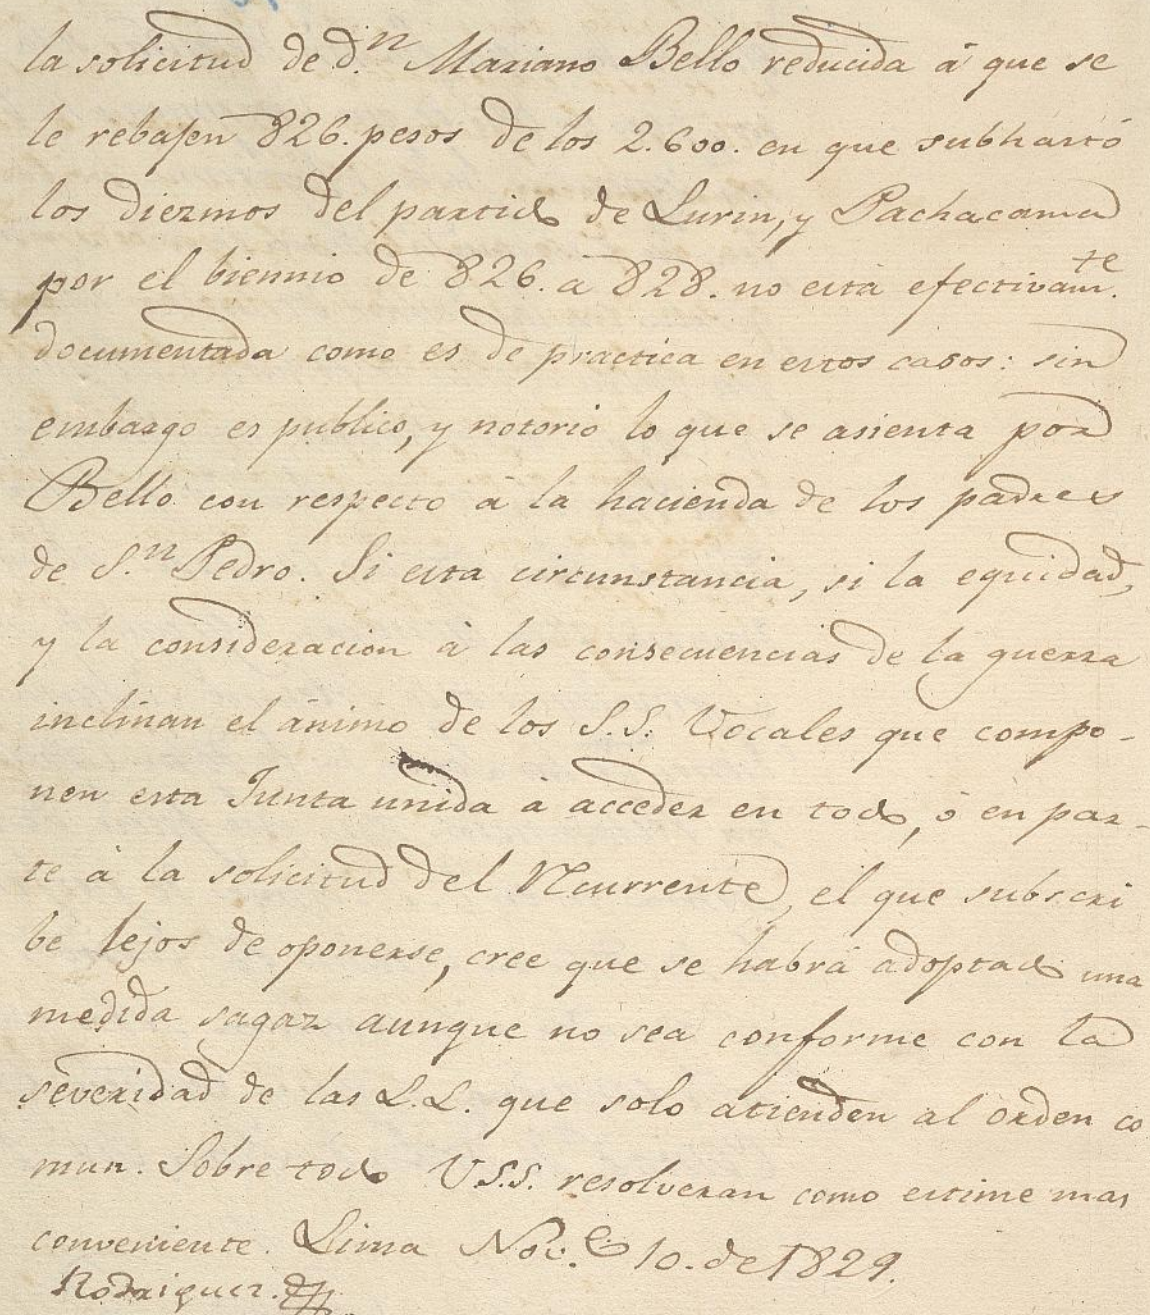 la solicitud de d.n Mariano Bello reducida á que se
le rebajen 826. pesos de los 2.600. en que subhastó
los diezmos del partido de Lurin, y Pachacama
por el biennio de 826. a 828. no está efectivam.te
documentada como es de practica en estos casos: sin
embargo es publico, y notorio lo que se asienta por
Bello con respecto á la hacienda de los padres
de S.n Pedro. Si esta circunstancia, si la equidad,
y la consideracion á las consecuencias de la guerra
inclinan el ánimo de los S.S. Vocales que compo-
nen esta Junta unida á acceder en todo, ó en par-
te á la solicitud del Recurrente, el que subscri
be lejos de oponerse, cree que se habrá adoptado una
medida sagaz aunque no sea conforme con la
severidad de las L.L. que solo atienden al orden co
mun. Sobre todo V.S.S. resolveran como estime mas
conveniente. Lima Nov.e 10. de 1829.
Rodriguez.